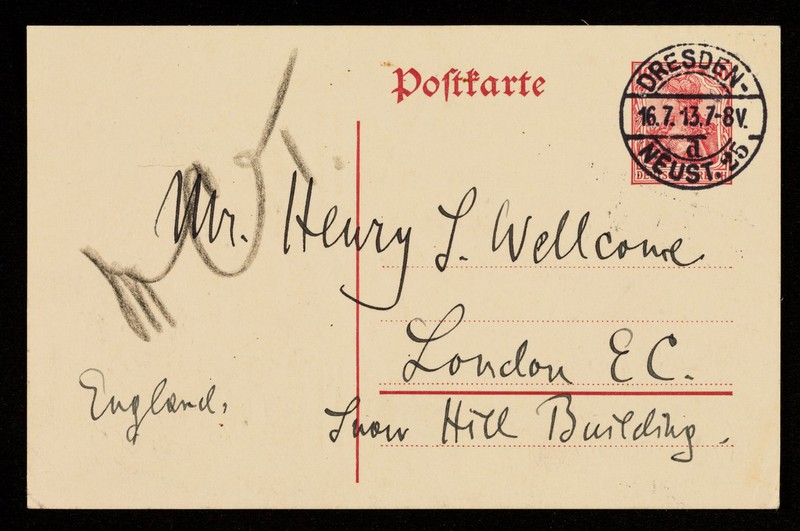 Postkarte
DRESDEN-
16.7.13.7-8V.
d
NEUST. 25
DEUTSCHES REICH
Mr. Henry S. Wellcome.
London E C.
England.
Snow Hill Building.